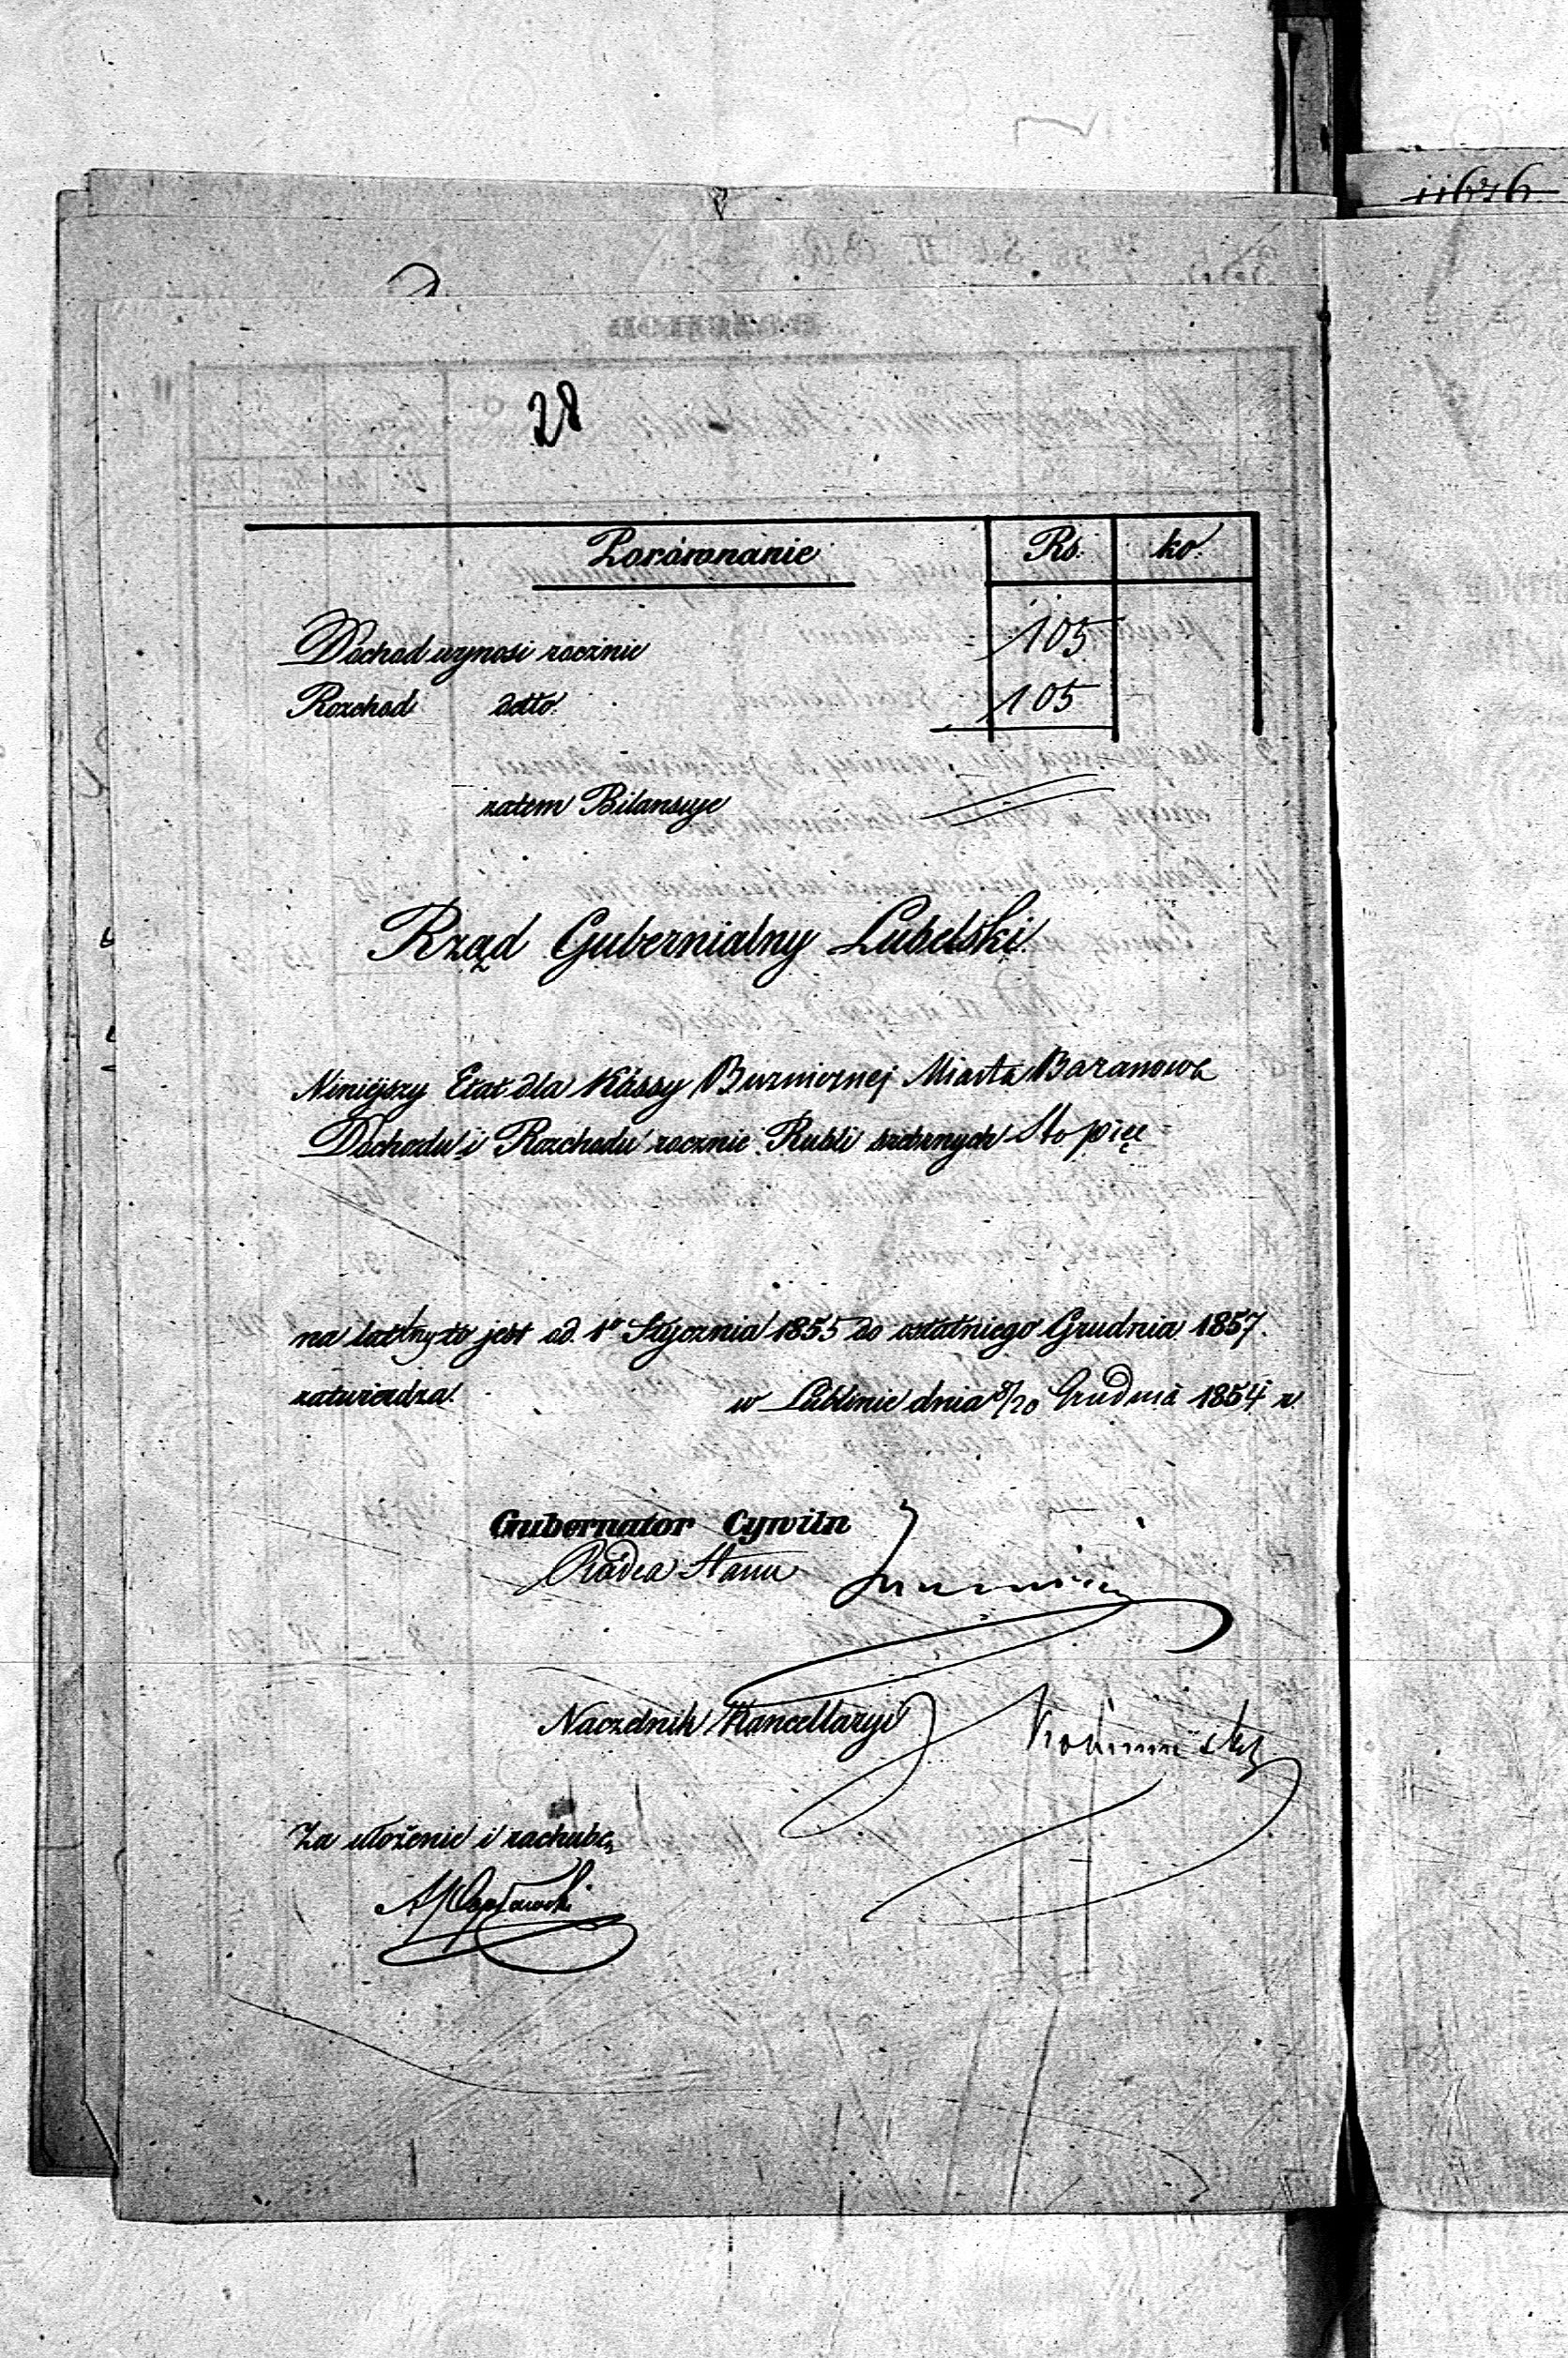 11676
28
Porównanie Rs. ko.
Dochod wynosi rocznie 105
Rozchod detto 105
zatem Bilansuje
Rząd Gubernialny Lubelski
Niniejszy Etat dla Kassy Bużniczney Miasta Baranowa
Dochodu i Rozchodu rocznie Rubli srebrnych Sto pięć
na lat trzy to jest od 1o Stycznia 1855 do ostatniego Grudnia 1857.
zatwierdza. w Lublinie dnia 8/20 Grudnia 1854 r.
Gubernator Cywiln
Radca Stanu
Naczelnik Kancellaryi
Za ułożenie i rachubę